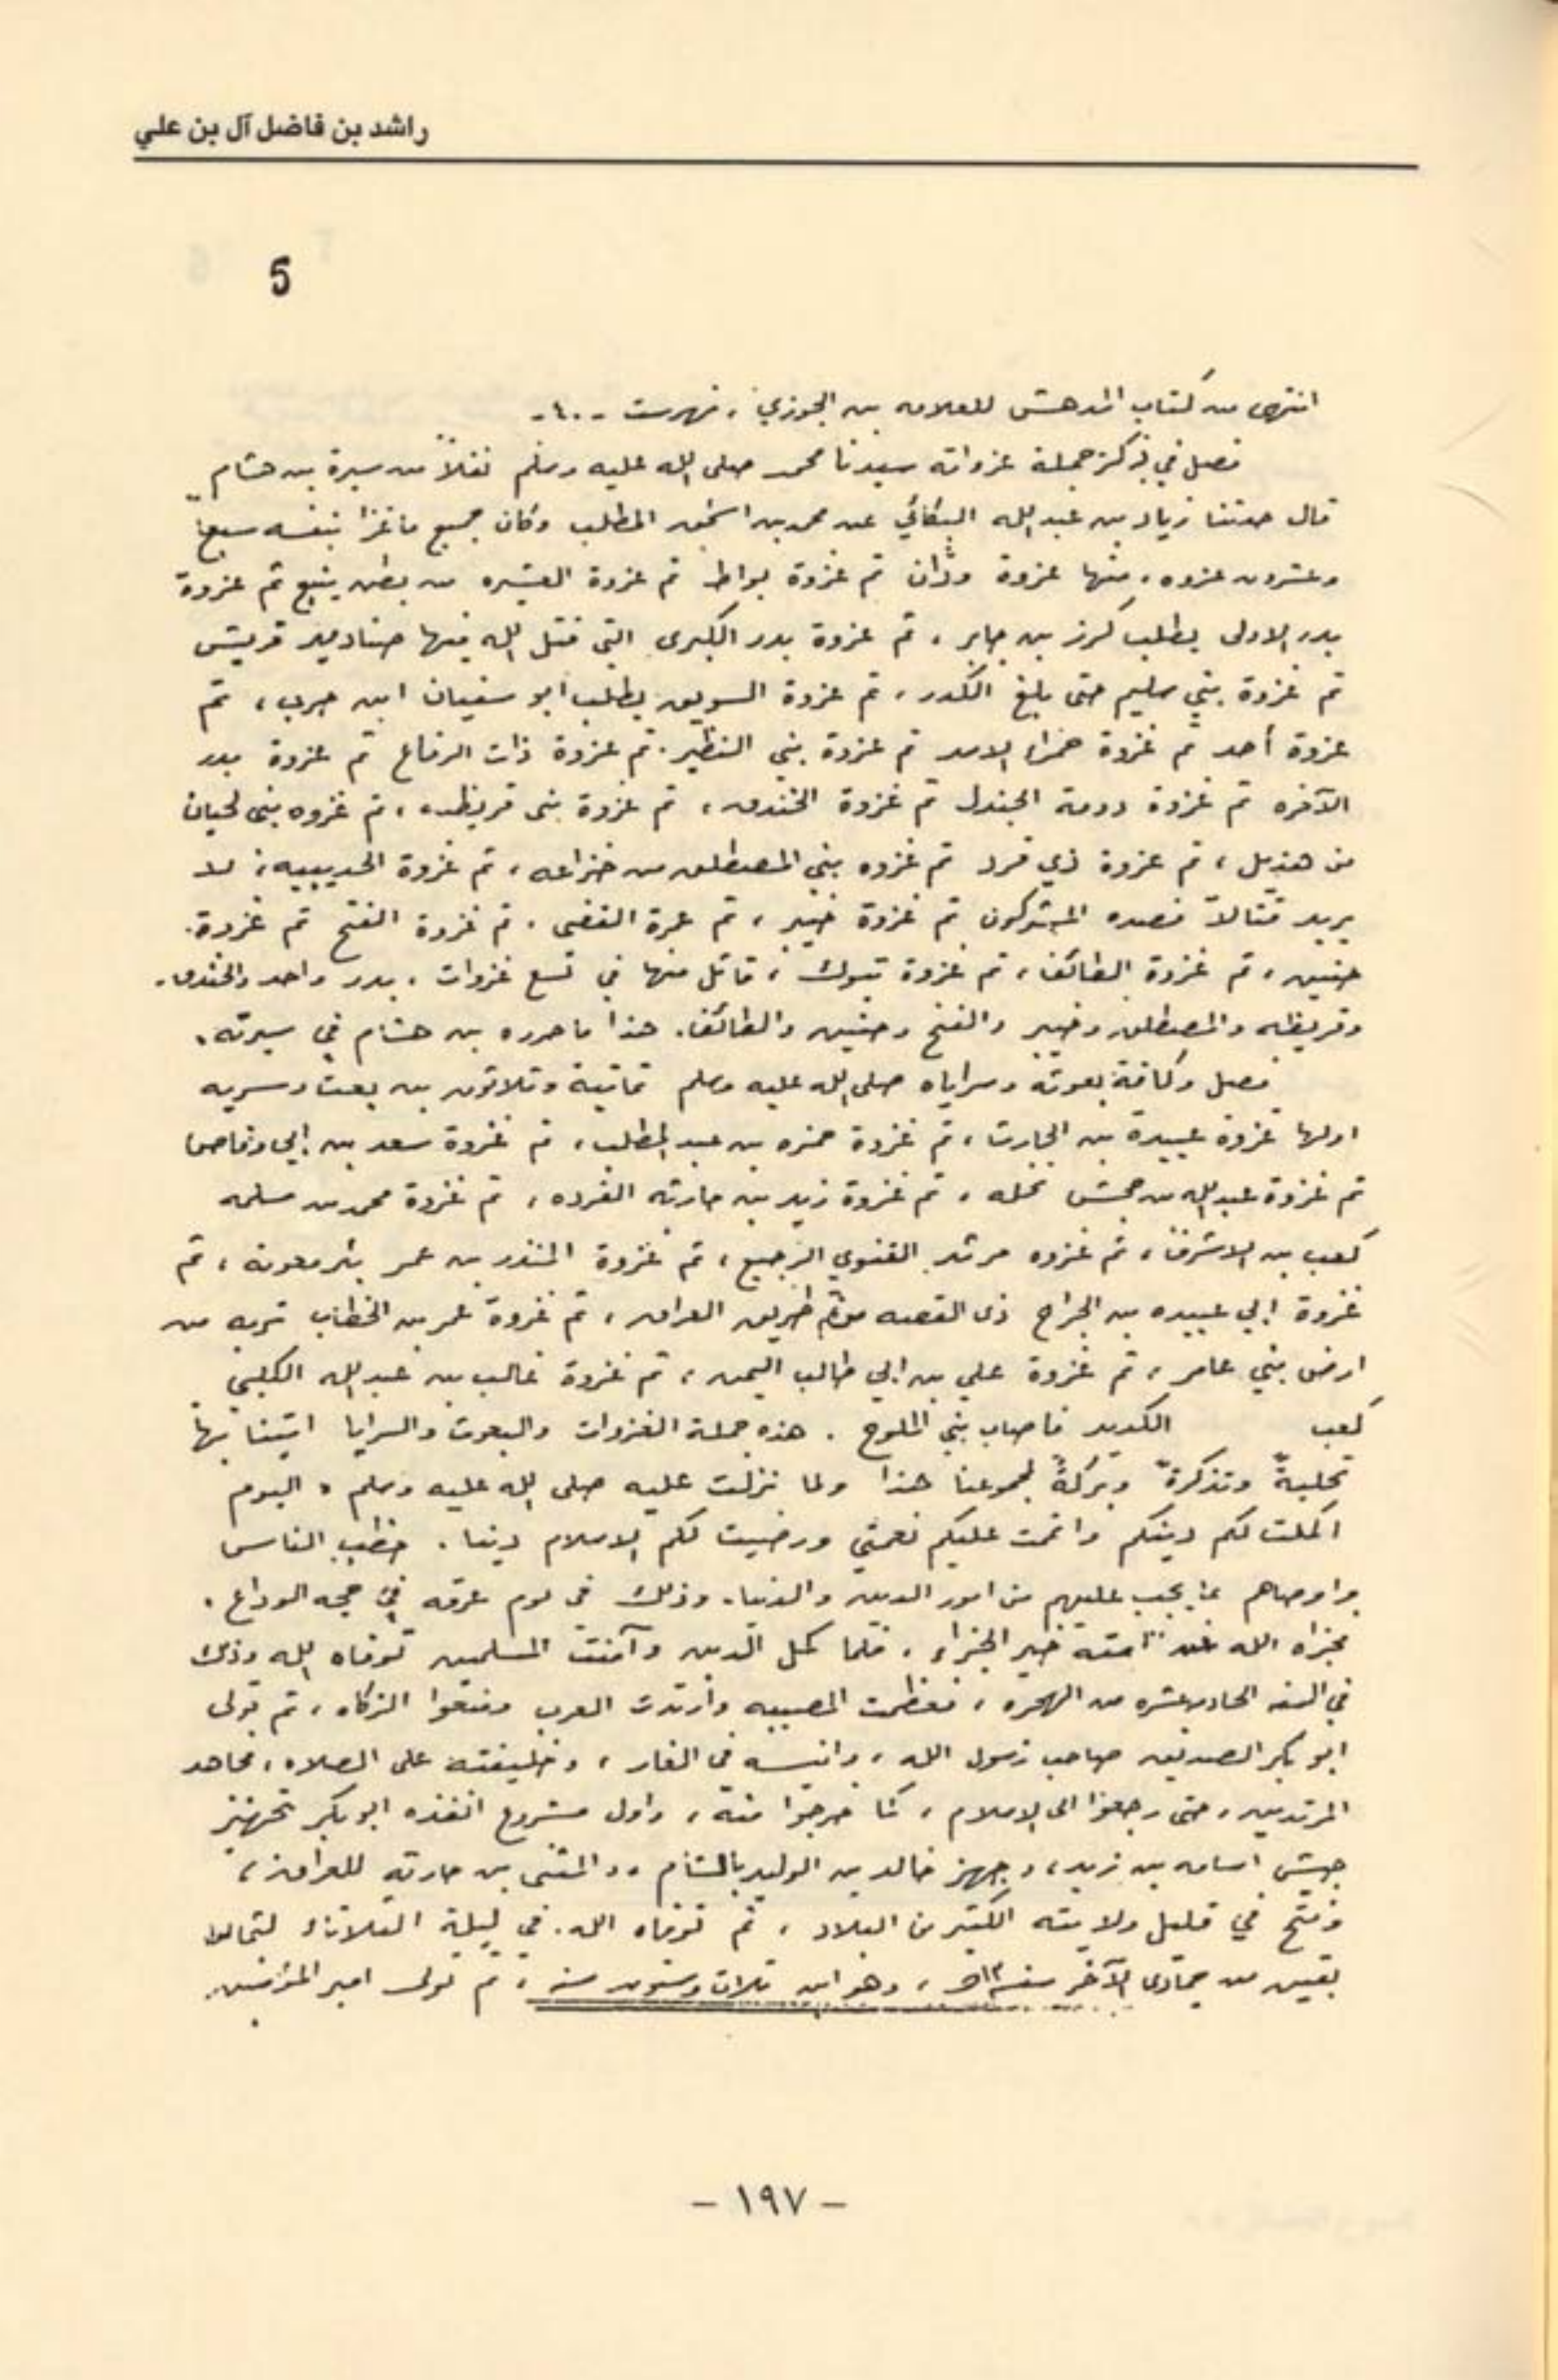 راشد بن فاضل آل بن علي
5
انتهى من كتاب المدهش للعلامه بن الجوزي، فهرست -٤٠-
فصل في ذكر جملة غزواته سيدنا محمد صلى الله عليه وسلم نقلاً من سيرة بن هشام
قال حدثنا زياد بن عبد الله البكائي عن محمد بن اسحق المطلب وكان جميع ما غزا بنفسه سبعاً
وعشرون غزوه، منها غزوة ودّان ثم غزوة بواط ثم غزوة العشيره من بطن ينبع ثم غزوة
بدر الاولى يطلب كرز بن جابر، ثم غزوة بدر الكبرى التي قتل الله فيها صناديد قريش
ثم غزوة بني سليم حتى بلغ الكدر، ثم غزوة السويق يطلب ابو سفيان ابن حرب، ثم
غزوة أحد ثم غزوة حمراء الاسد ثم غزوة بني النظير. ثم غزوة ذات الرقاع ثم غزوة بدر
الآخره ثم غزوة دومة الجندل ثم غزوة الخندق، ثم غزوة بنى قريظه، ثم غزوه بنى لحيان
من هذيل، ثم غزوة ذي قرد ثم غزوه بني المصطلق من خزاعه، ثم غزوة الحديبيه، لا
يريد قتالاً فصده المشركون ثم غزوة خيبر، ثم عمرة القضى. ثم غزوة الفتح ثم غزوة.
حنين، ثم غزوة الطائف، ثم غزوة تبوك، قاتل منها في تسع غزوات، بدر واحد والخندق.
وقريظه والمصطلق وخيبر والفتح وحنين والطائف. هذا ما حرره بن هشام في سيرته.
فصل وكافة بعوثه وسراياه صلى الله عليه وسلم ثمانية وثلاثون بين بعث وسريه
اولها غزوة عبيدة بن الحارث، ثم غزوة حمزه بن عبد المطلب، ثم غزوة سعد بن ابي وقاص
ثم غزوة عبد الله بن جحش نخله، ثم غزوة زيد بن حارثه القرده، ثم غزوة محمد بن مسلمه
كعب بن الاشرف، ثم غزوه مرثد الغنوي الرجيع، ثم غزوة المنذر بن عمر بئر معونه، ثم
غزوة ابي عبيده بن الجراح ذى القصه طريق العراق، ثم غزوة عمر بن الخطاب تربه من
ارض بني عامر، ثم غزوة علي بن ابي طالب اليمن، ثم غزوة غالب بن عبد الله الكلبي
كعب الكديد فاصاب بني الملوح. هذه جملة الغزوات والبعوث والسرايا اتينا بها
تحلية وتذكرة وبركة لمجموعنا هذا ولما نزلت عليه صلى الله عليه وسلم، اليوم
اكملت لكم دينكم واتممت عليكم نعمتي ورضيت لكم الاسلام دينا. خطب الناس
واوصاهم بما يجب عليهم من امور الدين والدنيا. وذلك في يوم عرفه في حجه الوداع.
فجزاه الله عن امته خير الجزاء، فلما كمل الدين وآمنت المسلمين توفاه الله وذلك
في السنه الحاديه عشره من الهجره، فعظمت المصيبه وارتدت العرب ومنعوا الزكاه، ثم تولى
ابو بكر الصديق صاحب رسول الله، وانيسه في الغار، وخليفته على الصلاه، فجاهد
المرتدين، حتى رجعوا الى الاسلام، كما خرجوا منه، واول مشروع انفذه ابو بكر تجهيز
جيش اسامه بن زيد، وجهز خالد بن الوليد بالشام، والمثنى بن حارثه للعراق،
وفتح في قليل ولايته الكثير من البلاد، ثم توفاه الله. في ليلة الثلاثاء لثمان
بقين من جمادى الآخر سنه ١٣هـ، وهو ابن ثلاث وستون سنه، ثم تولى امير المؤمنين
- ١٩٧ -